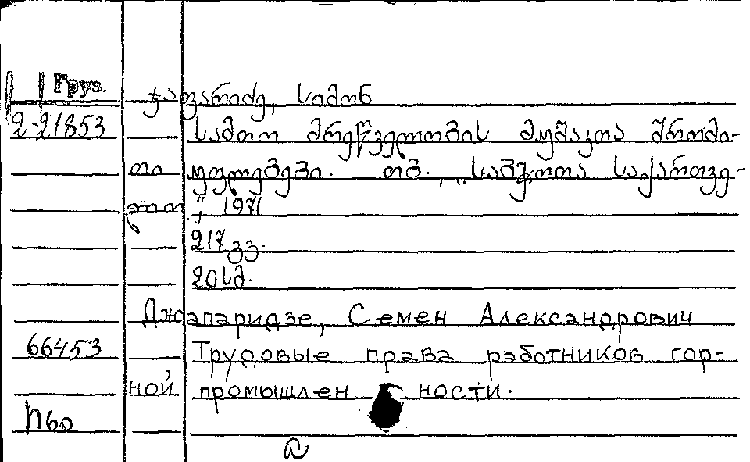 Груз.
ჯაფარიძე, სიმონ
2-21853 სამთო მრეწველობის მუშაკთა შრომი-
თი უფლებები. თბ. „საბჭოთა საქართვე-
ლო", 1971
217 გვ.
20სმ.
Джапаридзе, Семен Александрович
66453 Трудовые права работников гор-
ной промышлен ности.